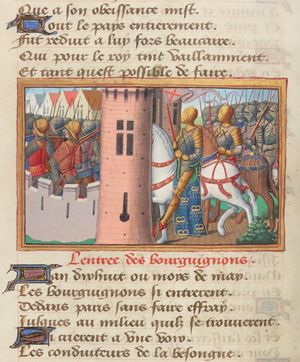 Que a son obeissance mist.
Tout le pays entierement.
Fut reduit a luy fors beaucaire.
Qui pour le roy tint vaillamment.
Et tant quest possible de faire.
Lentree des bourguignons
Lan dixhuit ou moys de may.
Les bourguignons si entrerent.
Dedans paris sans faire effray
Jusques au milieu quilz se trouuerent.
Si crierent a vne voix
Les conduiteurs de la besongne